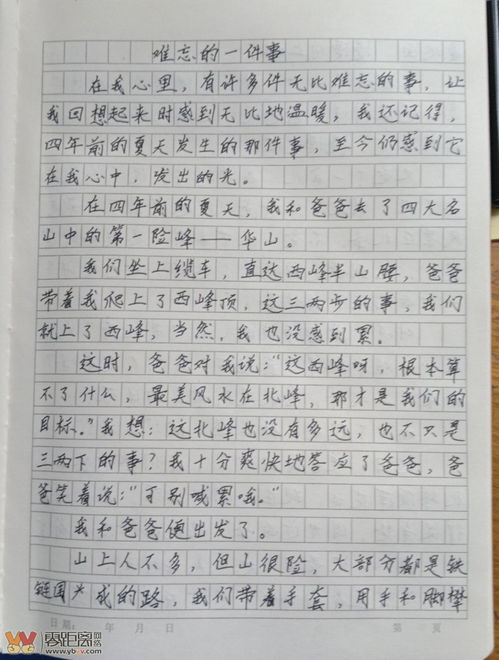 难忘的一件事
在我心里，有许多件无比难忘的事，让
我回想起来时感到无比地温暖，我还记得，
四年前的夏天发生的那件事，至今仍感到它
在我心中，发出的光。
在四年前的夏天，我和爸爸去了四大名
山中的第一险峰——华山。
我们坐上缆车，直达西峰半山腰，爸爸
带着我爬上了西峰顶，这三两步的事，我们
就上了西峰，当然，我也没感到累。
这时，爸爸对我说：“这西峰呀，根本算
不了什么，最美风水在北峰，那才是我们的
目标。”我想：这北峰也没有多远，也不只是
三两下的事？我十分爽快地答应了爸爸，爸
爸笑着说：“可别喊累哦。”
我和爸爸便出发了。
山上人不多，但山很险，大部分都是铁
链围成的路，我们带着手套，用手和脚攀
日期： 年 月 日 第 页
零距离网络
www.ybvv.com